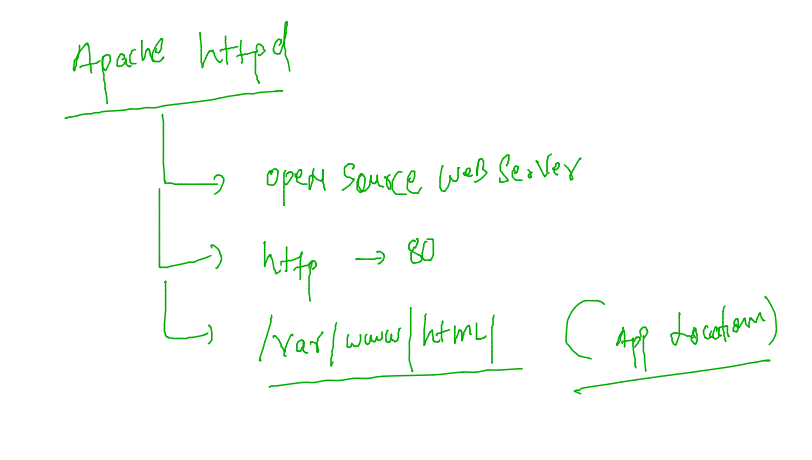 Apache httpd
open source web server
http → 80
/var/www/html/ (App location)